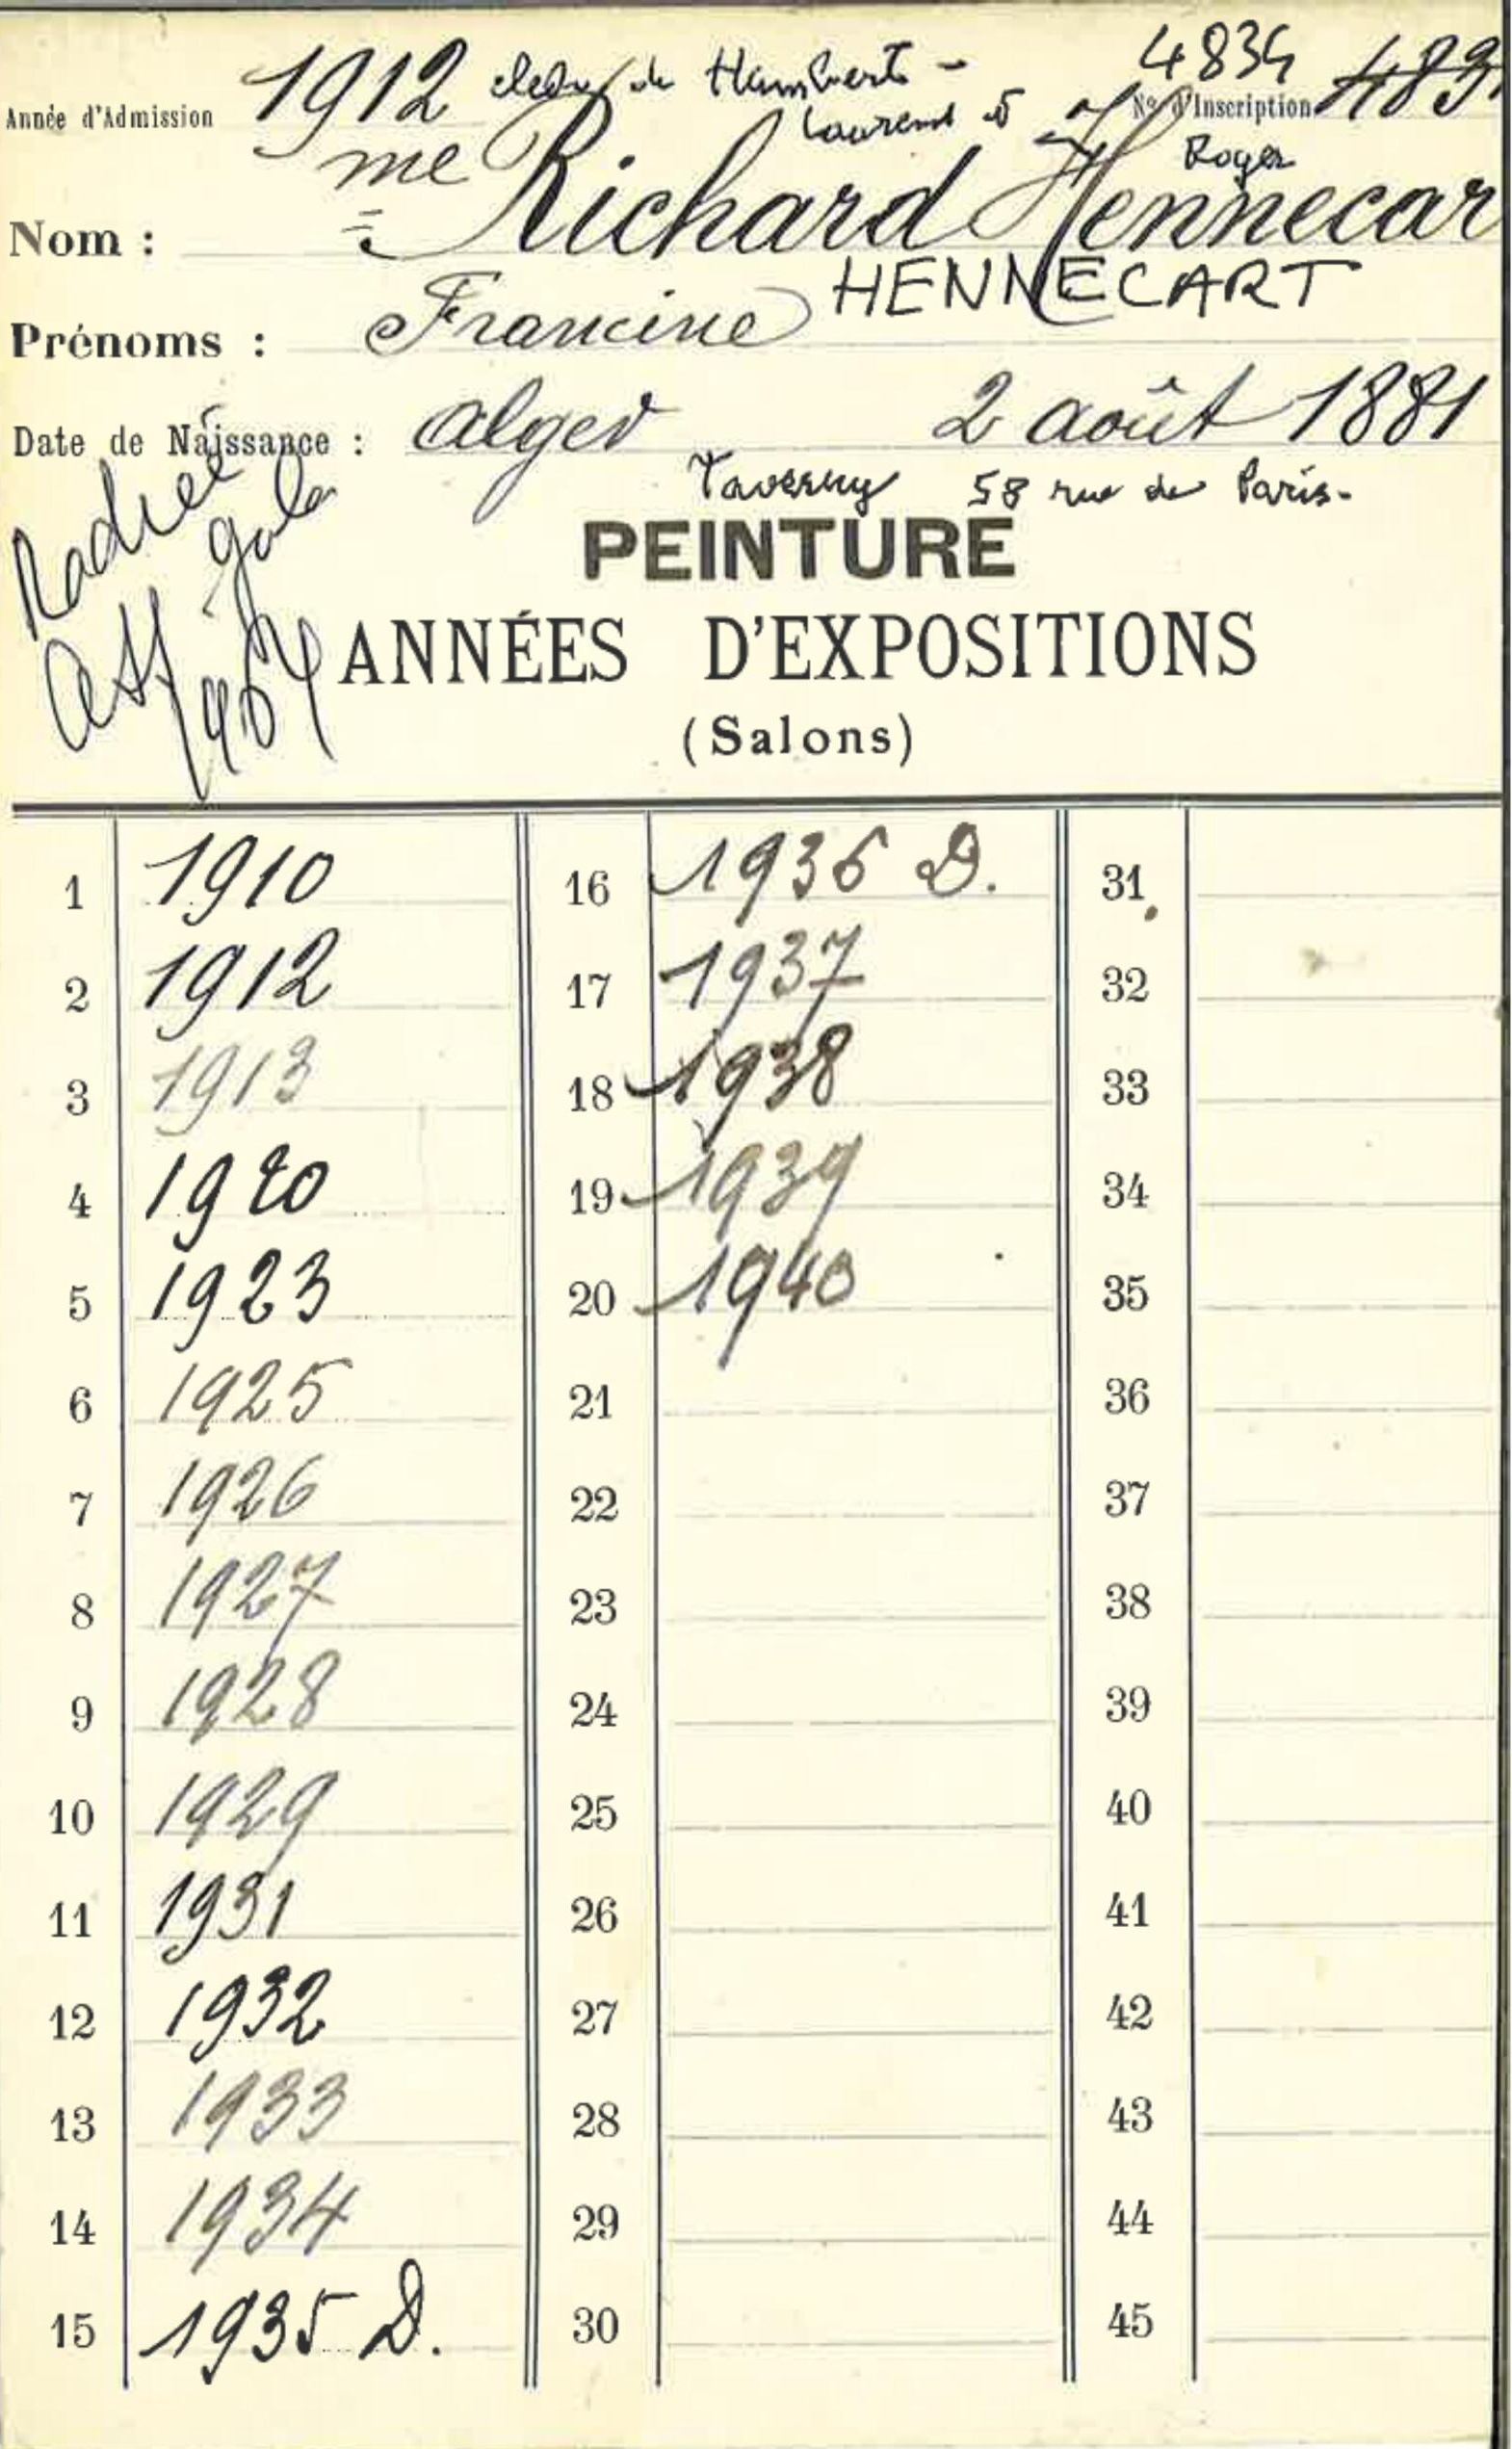 4834
Année d'Admission 1912 de Humbert - N° d'Inscription
Laurens
Roger
Nom : me Richard Hennecar
HENNECART
Prénoms : Francine
Date de Naissance : Alger 2 août 1881
Taverny 58 rue de Paris-
PEINTURE
ANNÉES D'EXPOSITIONS
(Salons)
1 1910 16 1936 D. 31
2 1912 17 1937 32
3 1913 18 1938 33
4 1920 19 1939 34
5 1923 20 1940 35
6 1925 21 36
7 1926 22 37
8 1927 23 38
9 1928 24 39
10 1929 25 40
11 1931 26 41
12 1932 27 42
13 1933 28 43
14 1934 29 44
15 1935 D. 30 45